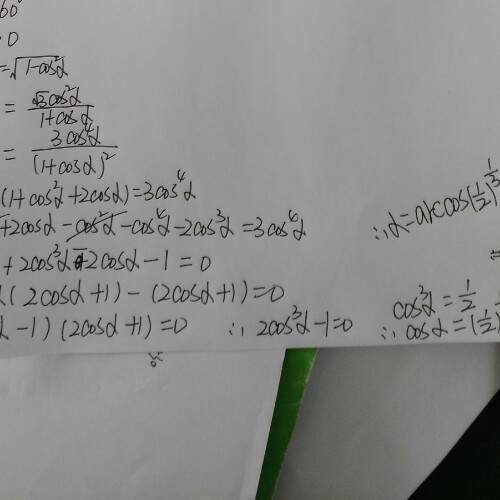 60°
0
=√(1-cos²α)
= √3cos²α/(1+cosα)
= 3cos⁴α/(1+cosα)²
(1+cos²α+2cosα)=3cos⁴α
+2cosα-cos²α-cos⁴α-2cos³α=3cos⁴α
+2cos³α-2cosα-1=0
(2cosα+1)-(2cosα+1)=0
-1)(2cosα+1)=0 ∴ 2cos³α-1=0
cos³α=1/2
∴ cosα=(1/2)
∴ α=arccos(1/2)^(1/3)